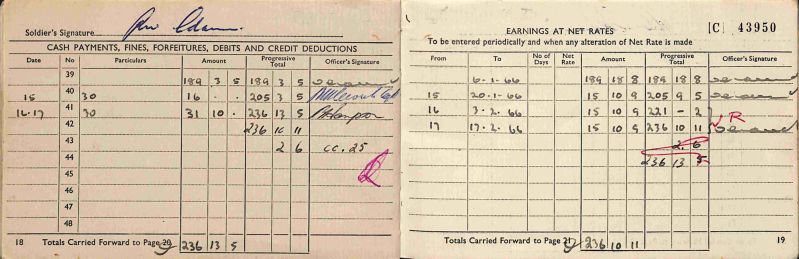 Soldier's Signature
CASH PAYMENTS, FINES, FORFEITURES, DEBITS AND CREDIT DEDUCTIONS
Date No Particulars Amount Progressive Total Officer's Signature
39 189 3 5 189 3 5
15 40 30 16 . . 205 3 5
16-17 41 30 31 10 . 236 13 5
42 236 10 11
43 2 6 CC. 25
44
45
46
47
48
18 Totals Carried Forward to Page 20 236 13 5
[C] 43950
EARNINGS AT NET RATES
To be entered periodically and when any alteration of Net Rate is made
From To No of Days Net Rate Amount Progressive Total Officer's Signature
6-1-66 189 18 8 189 18 8
15 20-1-66 15 10 9 205 9 5
16 3-2-66 15 10 9 221 - 2
17 17-2-66 15 10 9 236 10 11 R
2 6
236 13 5
Totals Carried Forward to Page 21 236 10 11
19